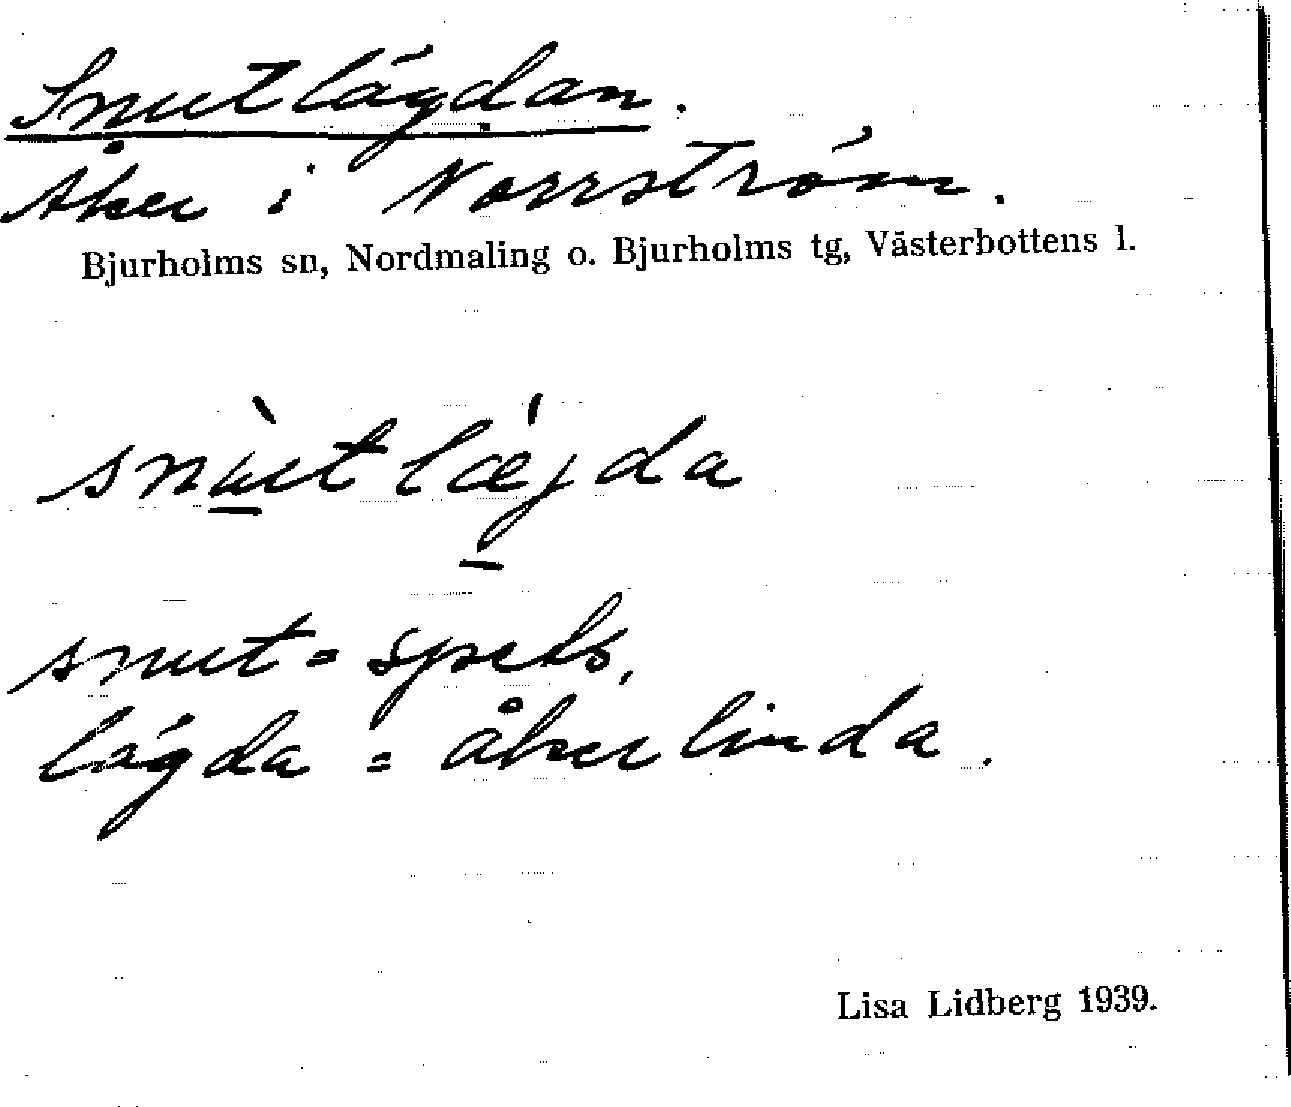 Snutlägdan.
Åker i Norrström.
Bjurholms sn, Nordmaling o. Bjurholms tg, Västerbottens l.
snùtlǽjda
snut = spets,
lägda = åkerlinda.
Lisa Lidberg 1939.